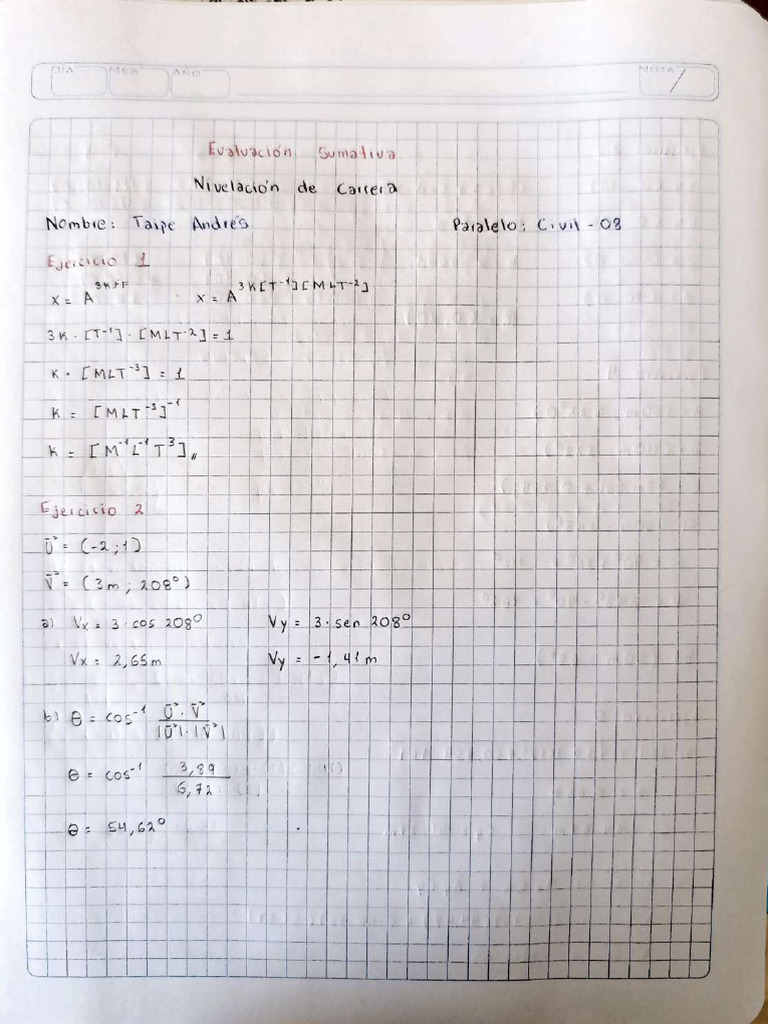 DIA MES AÑO NOTA
Evaluación Sumativa
Nivelación de Carrera
Nombre: Taipe Andrés Paralelo: Civil - 08
Ejercicio 1
x = A^3KfF x = A^3K[T^-1][MLT^-2]
3K · [T^-1] · [MLT^-2] = 1
K · [MLT^-3] = 1
K = [MLT^-3]^-1
K = [M^-1 L^-1 T^3]
Ejercicio 2
Ū = (-2 ; 1)
V̄ = (3m ; 208°)
a) Vx = 3 · cos 208° Vy = 3 · sen 208°
Vx = 2,65m Vy = -1,41m
b) θ = cos^-1 Ū · V̄ / |Ū| · |V̄|
θ = cos^-1 3,89 / 6,72
θ = 54,62°